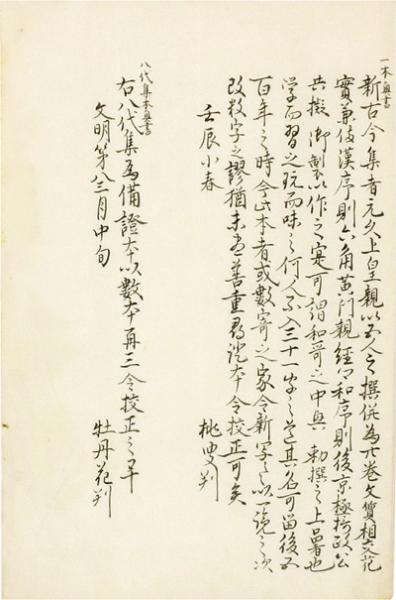 一本奥書
新古今集者元久上皇親以五人之撰併為廿巻文質相交花
實兼備漢序則六角黄門親経卿和序則後京極摂政公
共擬御製以作之寔可謂和哥之中興勅撰之上冣者也
学而習之玩而味之何人不入三十一字之道其名可留後五
百年之時今此本者或数寄之家令新写之以一覧之次
改数字之謬猶未尽善重尋證本令校正可矣
壬辰小春
桃叟判
八代集本奥書
右八代集為備證本以數本再三令挍正之畢
文明第八三月中旬
牡丹花判